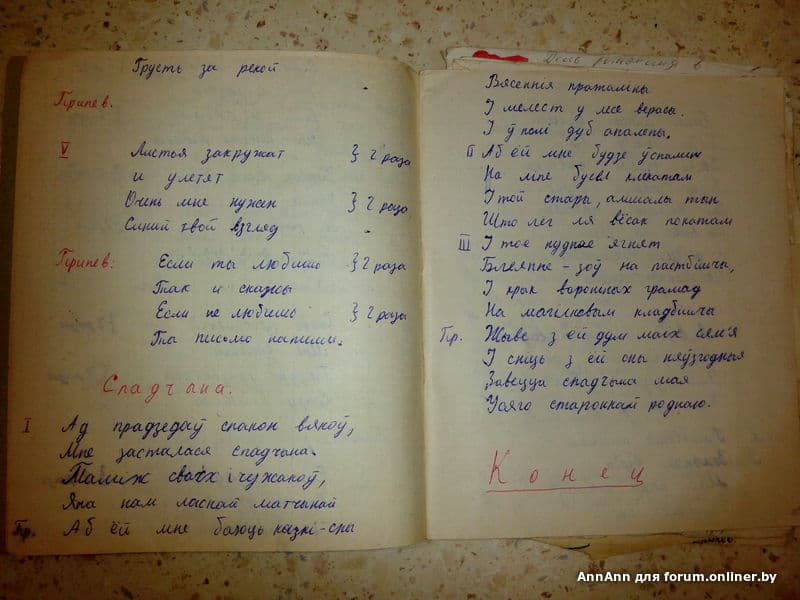 Грусть за рекой
Припев.
V Листья закружат } 2 раза
и улетят
Очень мне нужен } 2 раза
Синий твой взгляд
Припев: Если ты любишь } 2 раза
Так и скажи
Если не любишь } 2 раза
Ты письмо напиши.
Спадчына.
I Ад прадзедаў спакон вякоў,
Мне засталася спадчына.
Паміж сваіх і чужакоў,
Яна нам ласкай матчынай
Пр. Аб ёй мне баюць казкі-сны
Вясеннія праталіны
І шелест у лесе верасы.
І ў полі дуб апалены.
II Аб ёй мне будзе ўспамін
На ліпе бусел клекатам
І той стары, амшалы тын
Што лег ля вёсак покатам
III І тое нуднае ягнят
Бляянне - зоў на пастбішчы,
І крык варонінах грамад
На магілкавым кладбішчы
Пр. Жыве з ёй дум маіх сям'я
І сніць з ёй сны няўзгодныя
Завецца спадчына мая
Усяго старонкай роднаю.
Конец
AnnAnn для forum.onliner.by